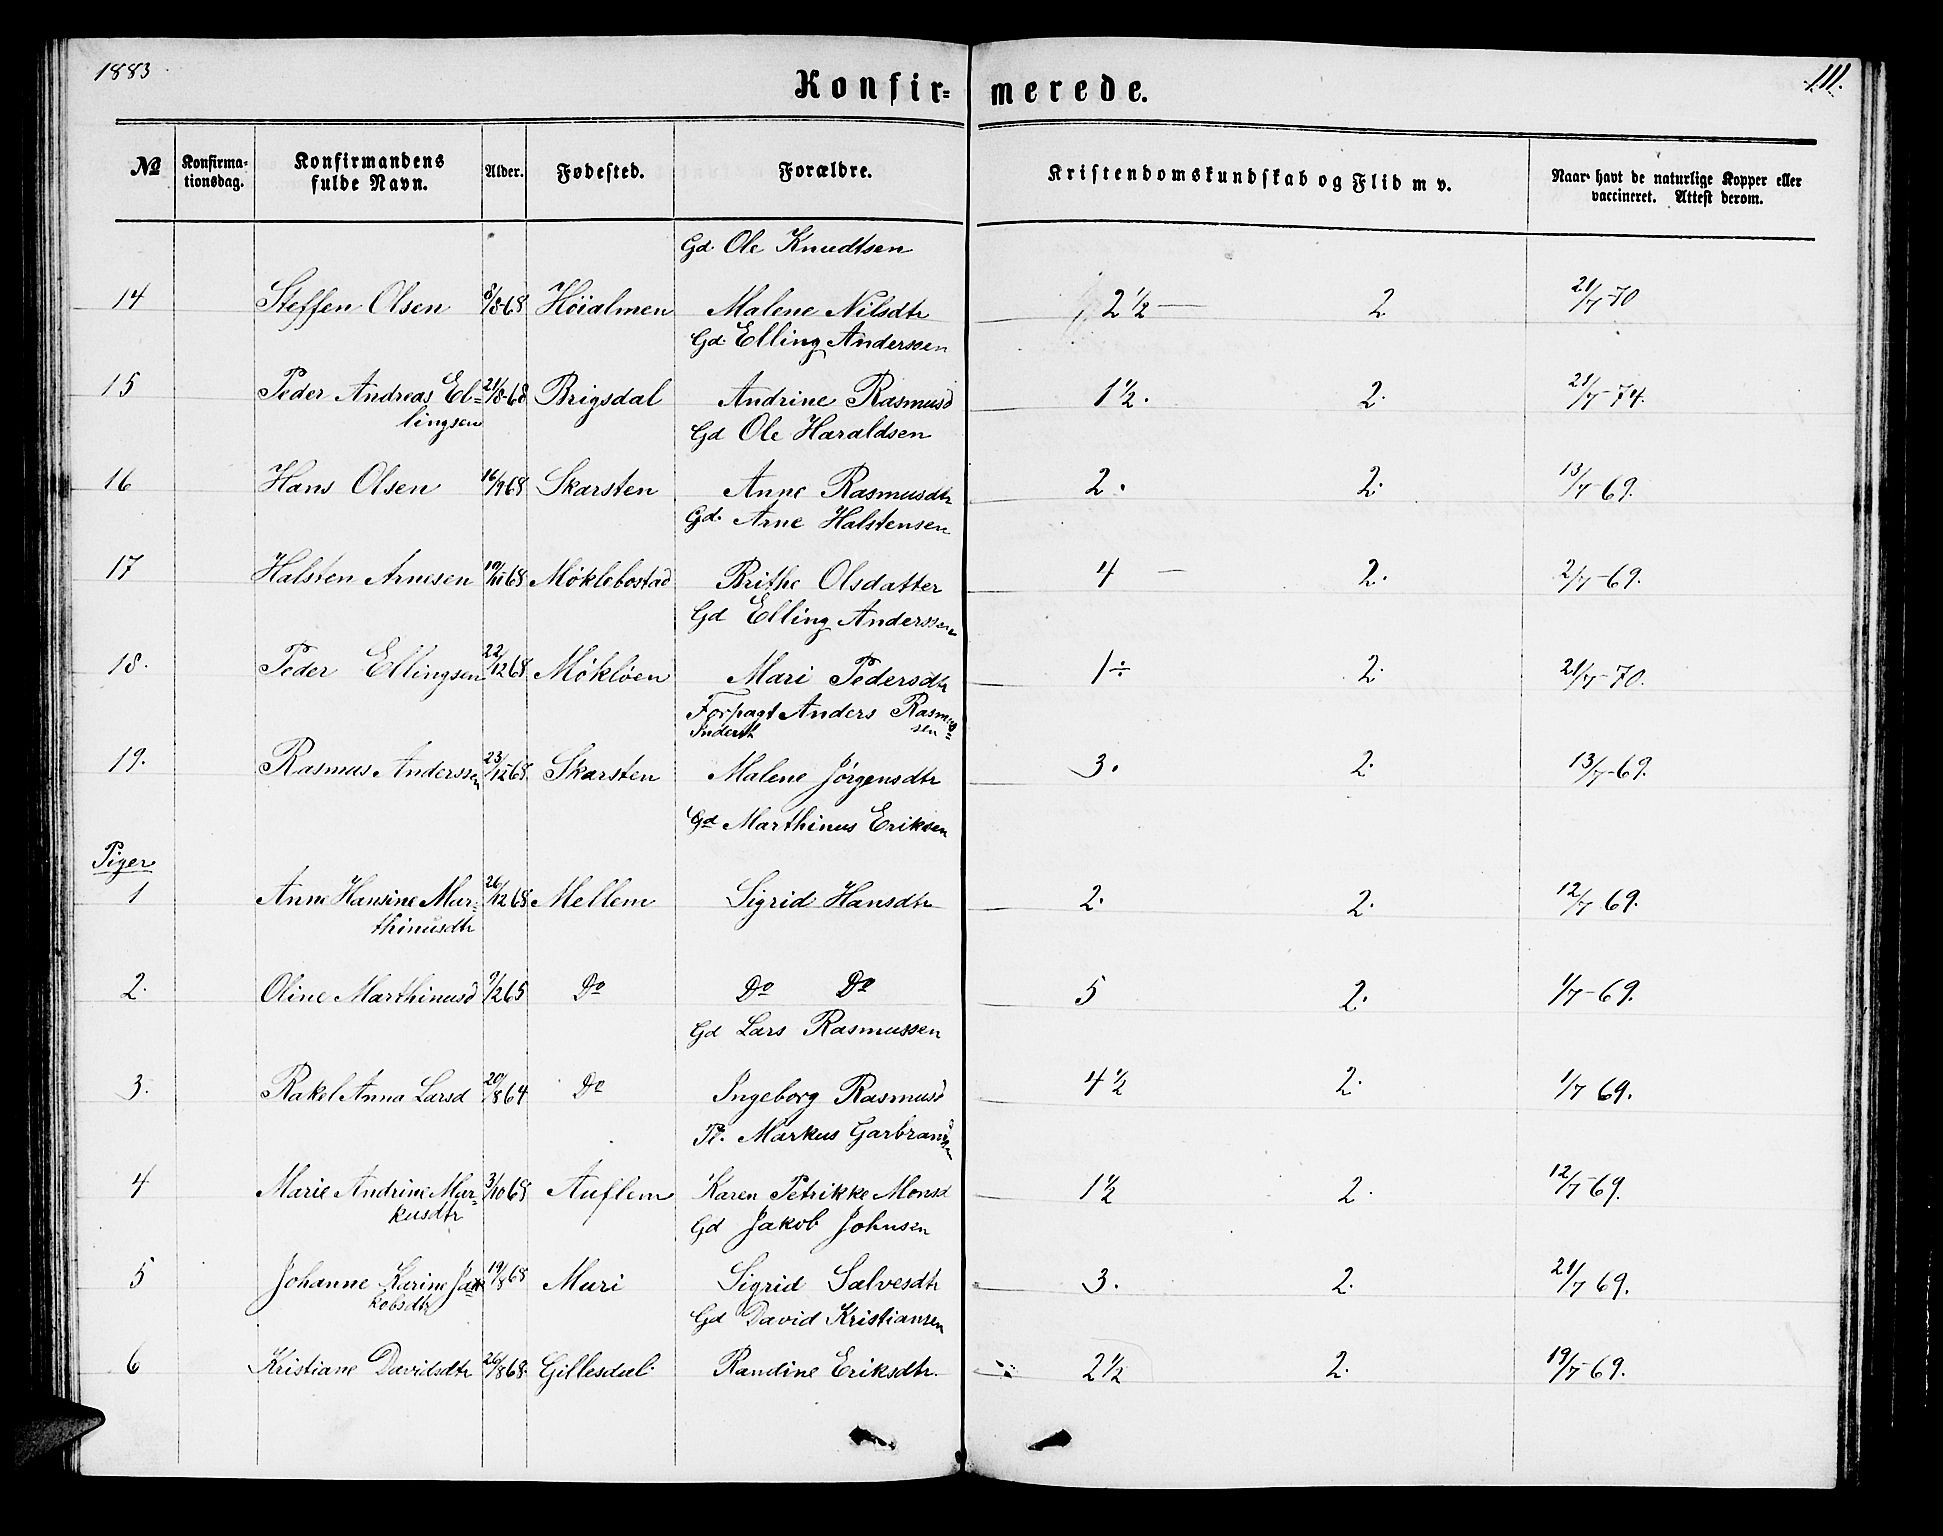 1883
Konfir= merede.
111.
No
Konfirma-
tionsdag.
Konfirmandens
fulde Navn.
Alder.
Fødested.
Forældre.
Kristendomskundskab og Flid m v.
Naar havt de naturlige Kopper eller
vaccineret. Attest derom.
Gd. Ole Knudtsen
14 Steffen Olsen 8/8-68 Höialmen Malene Nilsdtr 2 1/2 — 2 21/7-70
Gd. Elling Anderssen
15 Peder Andreas El= 21/8-68 Brigsdal Andrine Rasmusd 1 1/2. 2. 21/7-74.
lingsen
Gd Ole Haraldsen
16 Hans Olsen 16/9 68 Skarsten Anne Rasmusdtr 2. 2. 13/7 69.
Gd. Arne Halstensen
17 Halsten Arnesen 19/11 68 Möklebostad Brithe Olsdatter 4 — 2. 2/7-69.
Gd Elling Anderssen
18. Peder Ellingsen 22/12 68 Möklöen Mari Pedersdtr 1÷ 2. 21/7-70.
Forpagt Anders Rasmus=
Inderst sen
19. Rasmus Anderssen 23/12 68. Skarsten Malene Jörgensdtr 3. 2. 13/7-69.
Gd Marthinus Eriksen
Piger
1 Anne Hansine Mar- 26/12 68 Mellem Sigrid Hansdtr 2. 2. 12/7 69.
thinusdtr
2. Oline Marthinusd 9/2 65 Do Do Do 5 2. 1/7-69.
Gd Lars Rasmussen
3. Rakel Anna Larsd 20/8 64 Do Ingeborg Rasmusd 4 1/2 2. 1/7 69.
Pl. Markus Garbrandsen
4 Marie Andrine Mar- 3/10 68 Auflem Karen Petrikke Monsd 1 1/2 2. 12/7-69.
kusdtr
Gd Jakob Johnsen
5 Johanne Karine Ja= 19/8 68 Muri Sigrid Salvesdtr 3. 2. 21/7 69.
kobsdtr
Gd David Kristiansen
6 Kristiane Davidsdtr 26/8 68. Gillesdal Randine Eriksdtr. 2 1/2 2. 19/7-69.